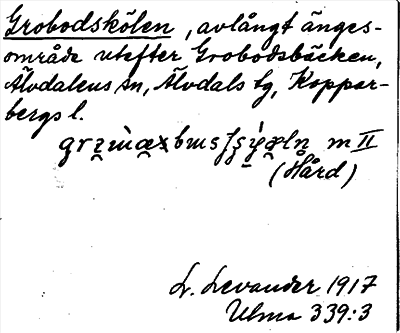 Grobodskölen, avlångt änges-
område utefter Grobodsbäcken,
Älvdalens sn, Älvdals tg, Koppar-
bergs l.
m II
(Hård)
L. Levander 1917
Ulma 339:3